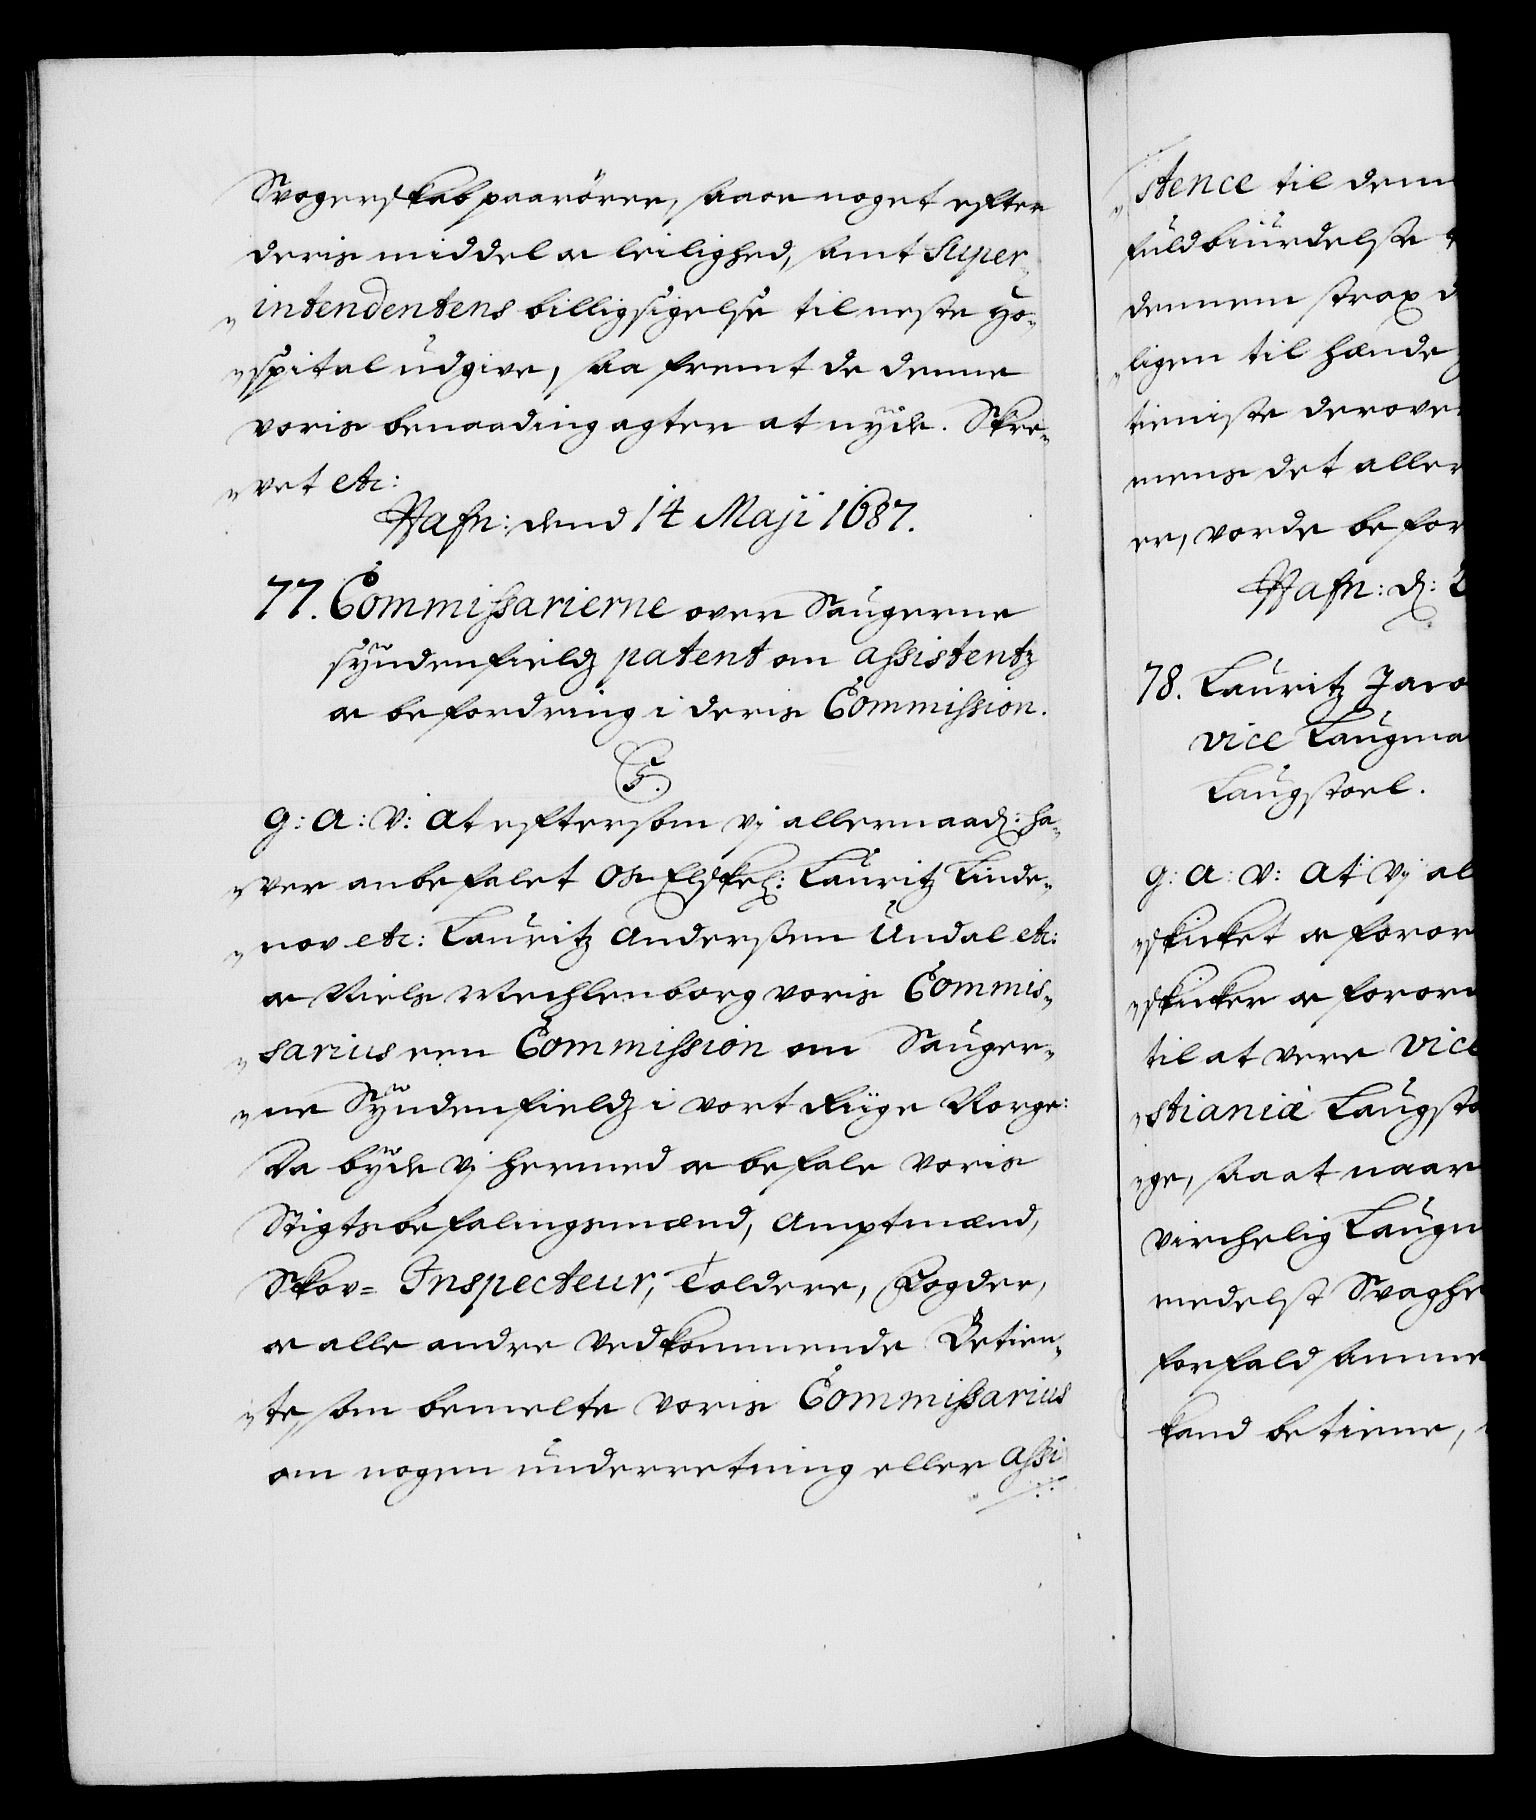 Svogerskab paarörer, skal noget efter
deris middel oc leilighed, samt Super¬
"intendentens billigsigelse til neste Ho¬
"spital udgive, saa fremt de denne
voris benaading agter at nyde. Skre¬
"vet etc:
Hafn: dend 14 Maji 1687.
77. Commissarierne over Saugerne
syndenfieldz patent om assistentz
oc befordring i deris Commission.
C5.
G: A: V: At eftersom Vj allernaad: ha¬
"ver anbefalet Os Elskel: Lauritz Linde¬
"nov etc: Lauritz Anderssen Undal etc:
oc Niels Mechlenborg voris Commis¬
"sarius een Commission om Sauger¬
"ne Syndenfieldz i vort Riige Norge:
Da byde Vj hermed oc befale voris
Stigtsbefalingsmænd, Amptmænd,
Skov= Inspecteur, Toldere, Fogder,
oc alle andre Vedkommende Betien¬
"te, som bemelte voris Commissarius
om nogen underretning eller Assi
"stence til dem
fuldbiurdelste
dennem strax d
"ligen til hænde
tieniste derover
mens det aller
er, vorde befor
Hafn: d: 2
78. Lauritz Jaco
vice Laugma
Laugstoel.
G: A: V: At Vj al
"skicket oc foror
"skicker oc foror
til at vere Vice
"stianiæ Laugsto
"ge, saa at naar
virchelig Laugm
medelst Svaghe
forfald samme
kand betiene,